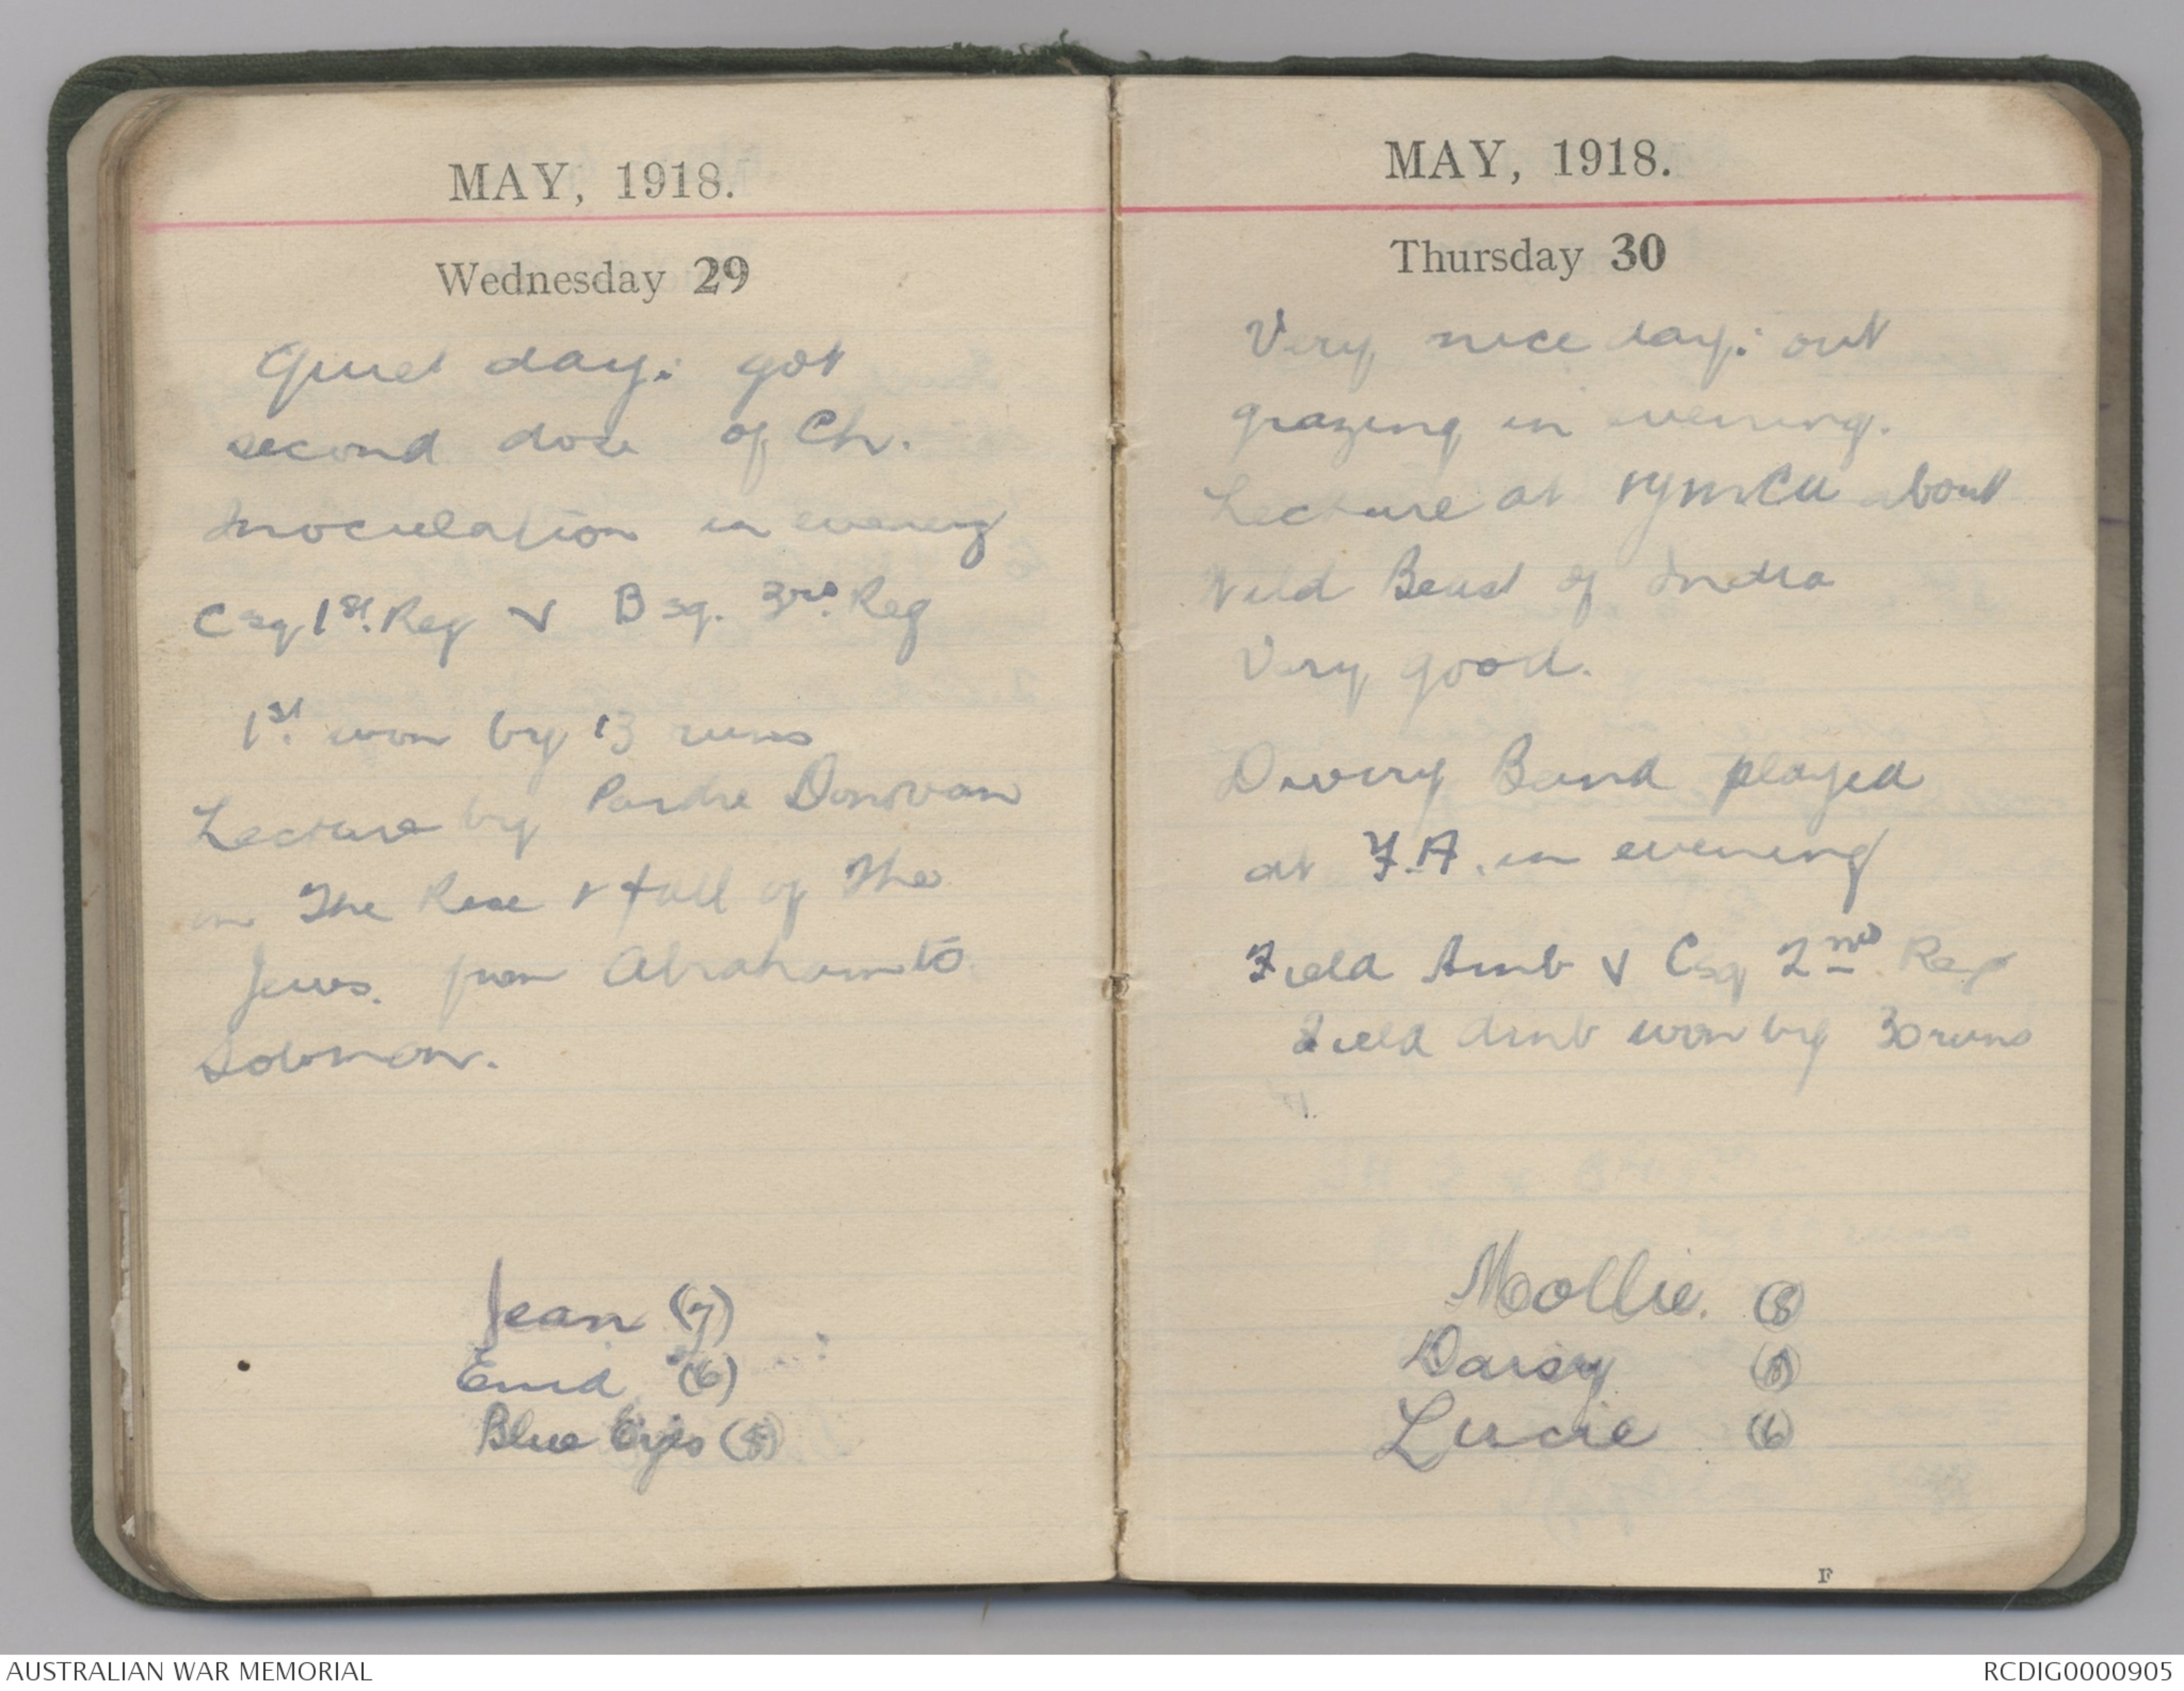 MAY, 1918.
Wednesday 29
Quiet day: got
second dose of Ch.
Inoculation in evening
C sq 1st. Reg v B sq. 3rd. Reg
1st. won by 13 runs
Lecture by Padre Donovan
on The Rise & fall of The
Jews. from Abraham to
Solomon.
Jean (7)
Enid (6)
Blue Eyes (5)
MAY, 1918.
Thursday 30
Very nice day: out
grazing in evening.
Lecture at YMCA about
Wild Beast of India
Very good.
Band played
at F.A. in evening
Field Amb v C sq 2nd. Reg
Field Amb won by 30 runs
Mollie. (8)
Daisy
Lucie (6)
F
AUSTRALIAN WAR MEMORIAL
RCDIG0000905